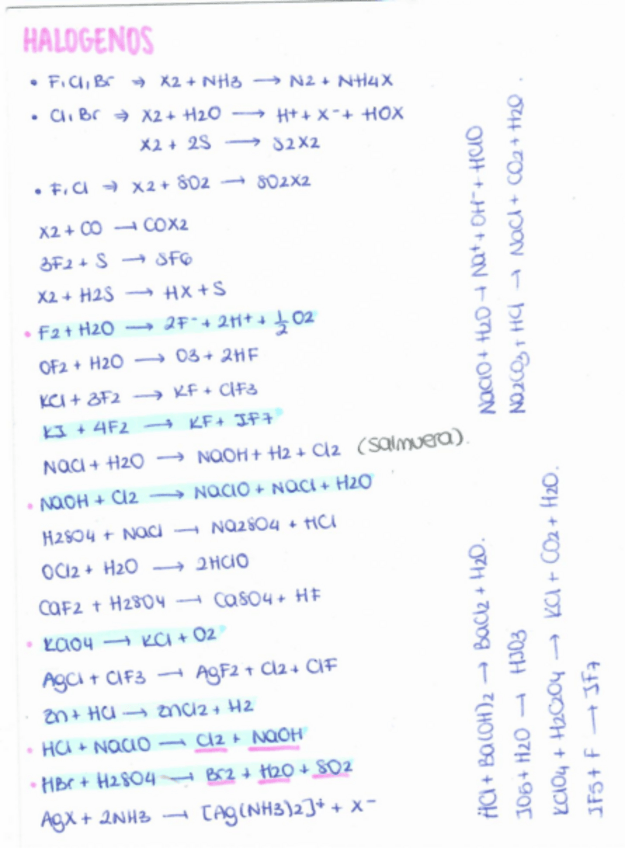 HALOGENOS
• F, Cl, Br ⇒ X2 + NH3 → N2 + NH4X
• Cl, Br ⇒ X2 + H2O → H+ + X- + HOX
X2 + 2S → S2X2
• F, Cl ⇒ X2 + SO2 → SO2X2
X2 + CO → COX2
3F2 + S → SF6
X2 + H2S → HX + S
• F2 + H2O → 2F- + 2H+ + 1/2 O2
OF2 + H2O → O3 + 2HF
KCl + 3F2 → KF + ClF3
KI + 4F2 → KF + IF7
NaCl + H2O → NaOH + H2 + Cl2 (salmuera).
• NaOH + Cl2 → NaClO + NaCl + H2O
H2SO4 + NaCl → Na2SO4 + HCl
OCl2 + H2O → 2HClO
CaF2 + H2SO4 → CaSO4 + HF
• KClO4 → KCl + O2
AgCl + ClF3 → AgF2 + Cl2 + ClF
Zn + HCl → ZnCl2 + H2
• HCl + NaClO → Cl2 + NaOH
• HBr + H2SO4 → Br2 + H2O + SO2
AgX + 2NH3 → [Ag(NH3)2]+ + X-
NaClO + H2O → Na+ + OH- + HClO
Na2CO3 + HCl → NaCl + CO2 + H2O.
HCl + Ba(OH)2 → BaCl2 + H2O.
IO5 + H2O → HIO3
KClO4 + H2C2O4 → KCl + CO2 + H2O.
IF5 + F → IF7